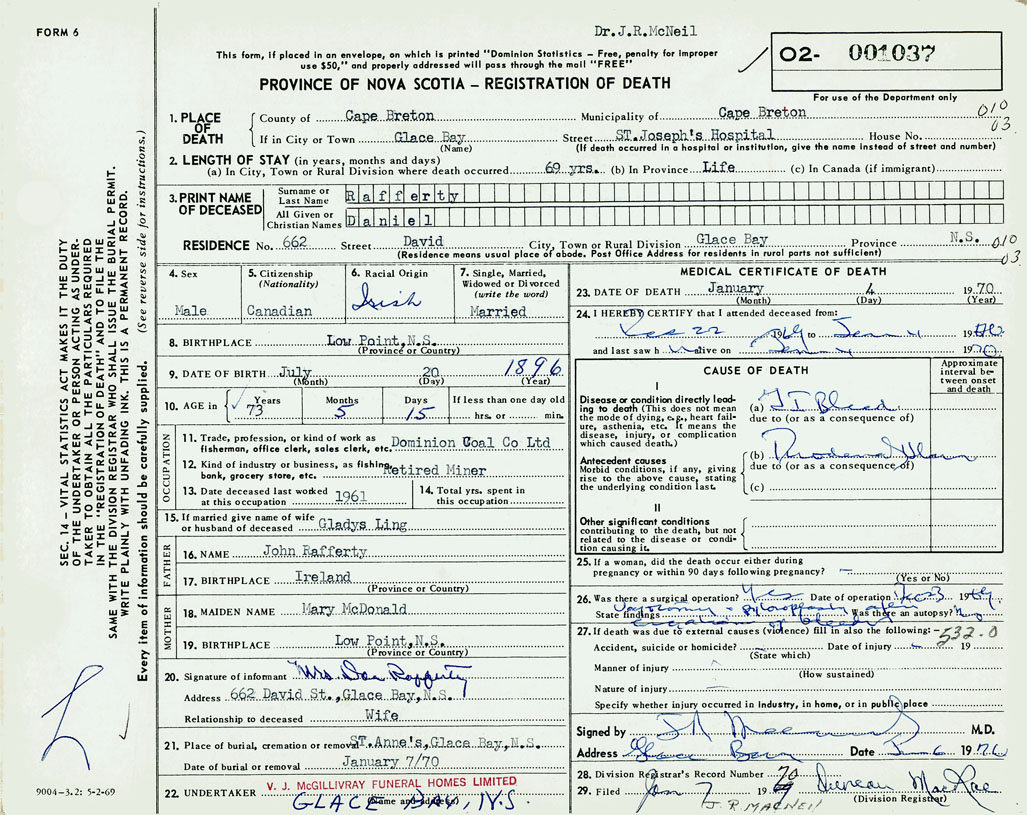 FORM 6
Dr.J.R.McNeil
This form, if placed in an envelope, on which is printed "Dominion Statistics - Free, penalty for improper
use $50," and properly addressed will pass through the mail "FREE"
O2- 001037
For use of the Department only
PROVINCE OF NOVA SCOTIA – REGISTRATION OF DEATH
1. PLACE OF DEATH
County of Cape Breton Municipality of Cape Breton 010
If in City or Town Glace Bay Street ST.Joseph's Hospital House No. 03
(Name) (If death occurred in a hospital or institution, give the name instead of street and number)
2. LENGTH OF STAY (in years, months and days)
(a) In City, Town or Rural Division where death occurred 69 yrs. (b) In Province Life (c) In Canada (if immigrant)
3. PRINT NAME OF DECEASED
Surname or Last Name Rafferty
All Given or Christian Names Daniel
RESIDENCE No. 662 Street David City, Town or Rural Division Glace Bay Province N.S. 010
(Residence means usual place of abode. Post Office Address for residents in rural parts not sufficient) 03
4. Sex
Male
5. Citizenship
(Nationality)
Canadian
6. Racial Origin
Irish
7. Single, Married,
Widowed or Divorced
(write the word)
Married
8. BIRTHPLACE Low Point,N.S.
(Province or Country)
9. DATE OF BIRTH July 20 1896
(Month) (Day) (Year)
10. AGE in Years Months Days If less than one day old
73 5 15 hrs. or min.
OCCUPATION
11. Trade, profession, or kind of work as
fisherman, office clerk, sales clerk, etc. Dominion Coal Co Ltd
12. Kind of industry or business, as fishing,
bank, grocery store, etc. Retired Miner
13. Date deceased last worked
at this occupation 1961
14. Total yrs. spent in
this occupation
15. If married give name of wife
or husband of deceased Gladys Ling
FATHER
16. NAME John Rafferty
17. BIRTHPLACE Ireland
(Province or Country)
MOTHER
18. MAIDEN NAME Mary McDonald
19. BIRTHPLACE Low Point,N.S.
(Province or Country)
20. Signature of informant Mrs Dan Rafferty
Address 662 David St.,Glace Bay,N.S.
Relationship to deceased Wife
21. Place of burial, cremation or removal ST.Anne's,Glace Bay,N.S.
Date of burial or removal January 7/70
22. UNDERTAKER V. J. McGILLIVRAY FUNERAL HOMES LIMITED
GLACE BAY, N.S.
(Name and address)
MEDICAL CERTIFICATE OF DEATH
23. DATE OF DEATH January 4 1970
(Month) (Day) (Year)
24. I HEREBY CERTIFY that I attended deceased from:
Dec 22 1969 to 19
and last saw h alive on 1970
CAUSE OF DEATH
Approximate
interval be-
tween onset
and death
I
Disease or condition directly lead-
ing to death (This does not mean
the mode of dying, e.g., heart fail-
ure, asthenia, etc. It means the
disease, injury, or complication
which caused death.)
(a) GI Bleed
due to (or as a consequence of)
Antecedent causes
Morbid conditions, if any, giving
rise to the above cause, stating
the underlying condition last.
(b)
due to (or as a consequence of)
(c)
II
Other significant conditions
contributing to the death, but not
related to the disease or condi-
tion causing it.
25. If a woman, did the death occur either during
pregnancy or within 90 days following pregnancy?
(Yes or No)
26. Was there a surgical operation? Yes Date of operation 1969
State findings Was there an autopsy?
27. If death was due to external causes (violence) fill in also the following: 532.0
Accident, suicide or homicide? Date of injury 19
(State which)
Manner of injury
(How sustained)
Nature of injury
Specify whether injury occurred in industry, in home, or in public place
Signed by M.D.
Address Glace Bay Date 19
28. Division Registrar's Record Number 70
29. Filed Jan 7 19 Duncan MacRae
(Division Registrar)
J. R. MACNEIL
SEC. 14 – VITAL STATISTICS ACT MAKES IT THE DUTY
OF THE UNDERTAKER OR PERSON ACTING AS UNDER-
TAKER TO OBTAIN ALL THE PARTICULARS REQUIRED
IN THE "REGISTRATION OF DEATH" AND TO FILE THE
SAME WITH THE DIVISION REGISTRAR WHO SHALL ISSUE THE BURIAL PERMIT.
WRITE PLAINLY WITH UNFADING INK. THIS IS A PERMANENT RECORD.
Every item of information should be carefully supplied. (See reverse side for instructions.)
9004-3.2: 5-2-69